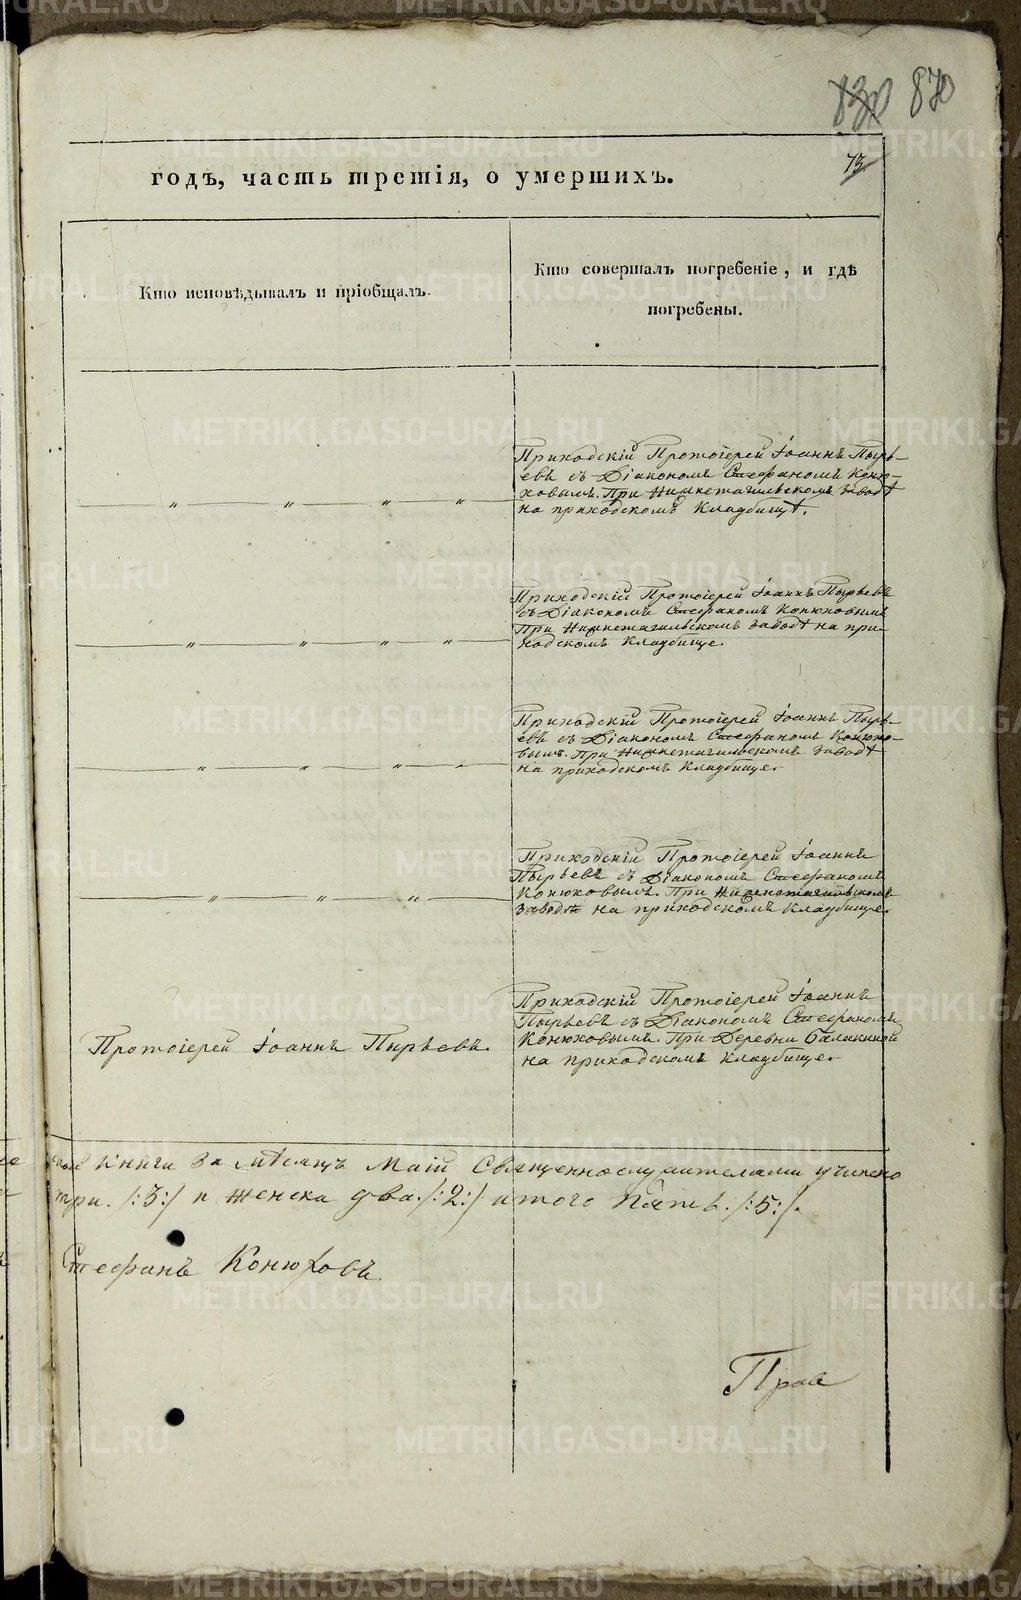 830 870
73
годъ, часть третія, о умершихъ.
Кто исповѣдывалъ и пріобщалъ.
Кто совершалъ погребеніе, и гдѣ
погребены.
Приходскій Протоіерей Іоаннъ Пырь-
евъ съ Діакономъ Стефаномъ Коню-
ховымъ. При Нижнетагильскомъ Заводѣ
на приходскомъ Кладбищѣ.
„ „ „ „
Приходскій Протоіерей Іоаннъ Пырьевъ
съ Діакономъ Стефаномъ Конюховымъ
При Нижнетагильскомъ Заводѣ на при-
ходскомъ Кладбище.
„ „ „ „
Приходскій Протоіерей Іоаннъ Пырь-
евъ съ Діакономъ Стефаномъ Конюхо-
вымъ. При Нижнетагильскомъ Заводѣ
на приходскомъ Кладбище.
„ „ „ „
Приходскій Протоіерей Іоаннъ
Пырьевъ съ Діакономъ Стефаномъ
Конюховымъ. При Нижнетагильскомъ
Заводѣ на приходскомъ Кладбище.
„ „ „
Протоіерей Іоаннъ Пырьевъ.
Приходскій Протоіерей Іоаннъ
Пырьевъ съ Діакономъ Стефаномъ
Конюховымъ. При Деревни Балакиной
на приходскомъ Кладбище.
книги за мѣсяцъ Маій Священнослужителями учинено
три. /:3:/ и женска два. /:2:/ итого пять. /:5:/.
Стефанъ Конюховъ
Прав
METRIKI.GASO-URAL.RU